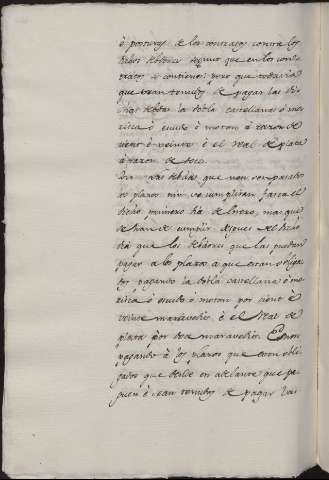 ò posturas de los contratos contra los
dichos deudores segun que en los contra
tratos se contiene: pero que todavia
que sean tenudos de pagar las di
chas debdas la dobla castellana ò mo
risca ò escudo ò moton à razon de
ciento è veinte è el real de plata
à razon de doce
las debdas que non son pasados
los plazos nin se cumpliràn fasta el
dicho primero dia de Enero, mas que
se han de cumplir despues del dicho
dia que los deudores que las puedan
pagar à los plazos a que estan obliga
dos pagando la dobla castellana ò mo
risca ò escudo ò moton por cient è
veinte maravedis è el Real de
plata por doce maravedis. E non
pagando à los plazos que eran obli
gados que dende en adelante que pa
guen è sean tenudos de pagar las